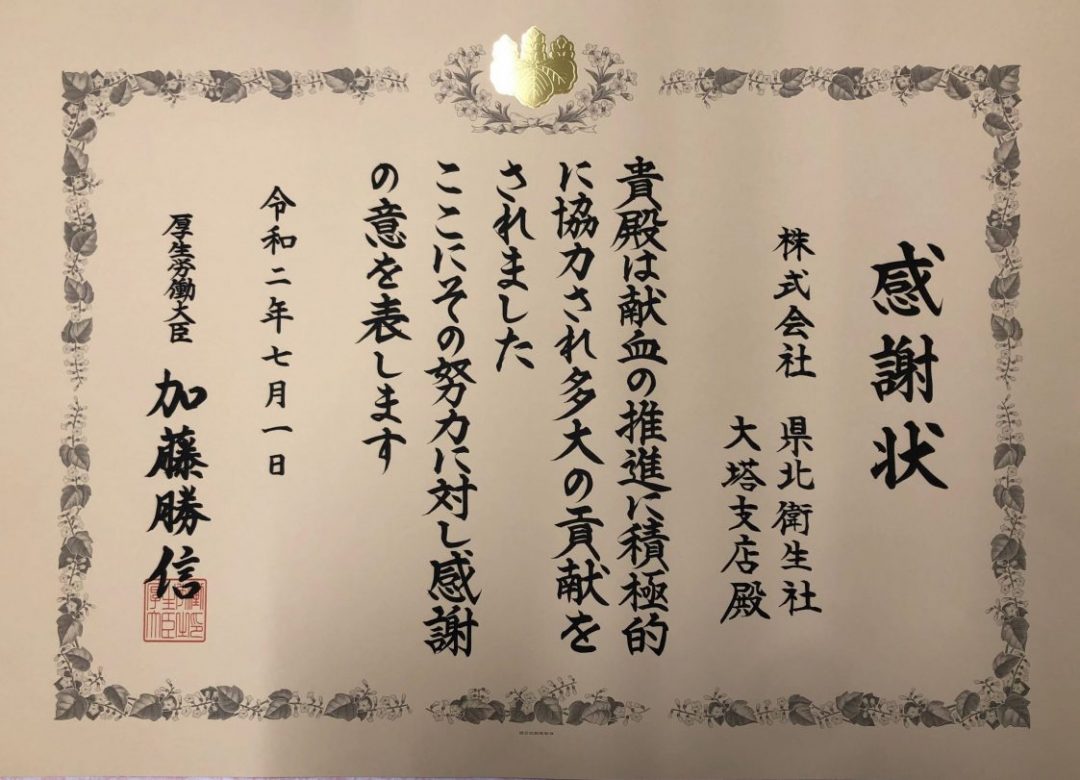 感謝状
株式会社 県北衛生社
大塔支店殿
貴殿は献血の推進に積極的
に協力され多大の貢献を
されました
ここにその努力に対し感謝
の意を表します
令和二年七月一日
厚生労働大臣 加藤勝信